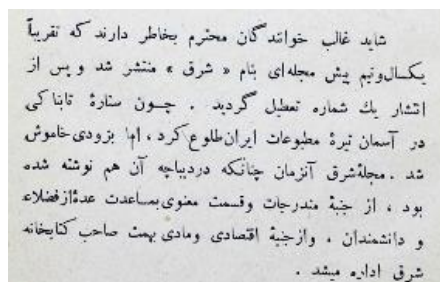 شاید غالب خوانندگان محترم بخاطر دارند که تقریباً
یکسال‌ونیم پیش مجله‌ای بنام « شرق » منتشر شد و پس از
انتشار یك شماره تعطیل گردید . چون ستارۀ تابناکی
در آسمان تیرۀ مطبوعات ایران طلوع کرد ، اما بزودی خاموش
شد . مجلۀ شرق آنزمان چنانکه دردیباچه آن هم نوشته شده
بود ، از جنبۀ مندرجات وقسمت معنوی بمساعدت عدۀ ازفضلاء
و دانشمندان ، وازجنبۀ اقتصادی ومادی بهمت صاحب کتابخانه
شرق اداره میشد .